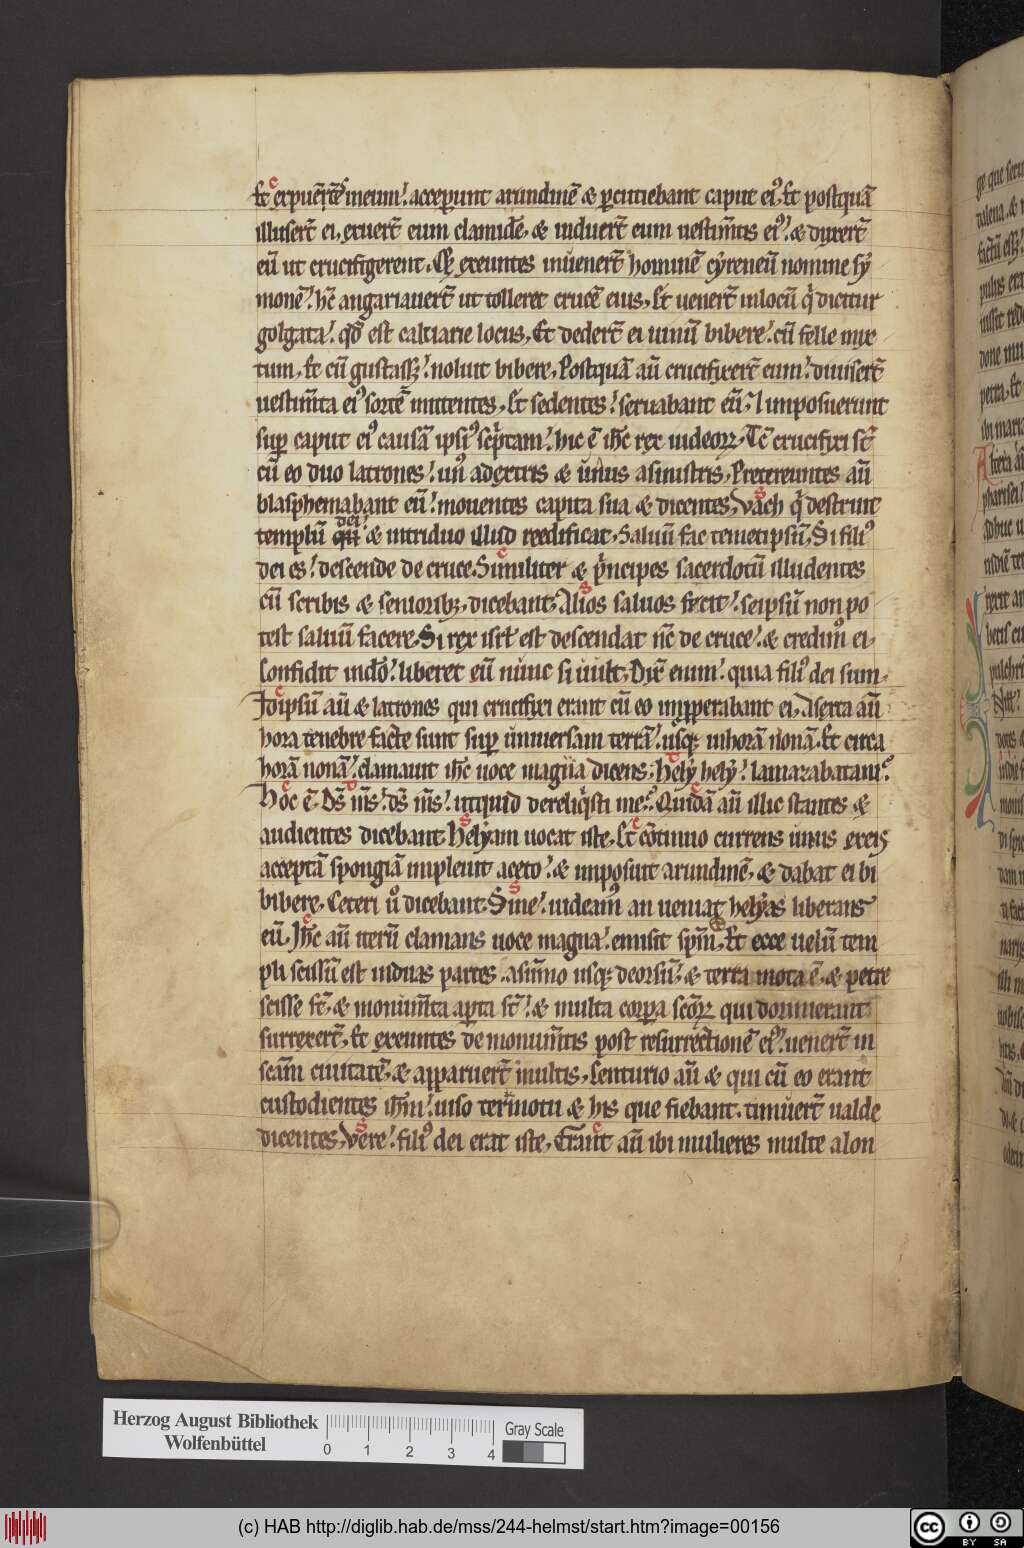 Et expuērt̄ in eum. acceperunt arundinē & percutiebant caput eiꝰ. Et postquā
illuserт̄ ei, exuerт̄ eum clamidē, & induerт̄ eum uestim̄tis eiꝰ. & duxerт̄
eū ut crucifigerent. exeuntes inuenerт̄ hominē cyreneū nomine sy
monē. hc̄ angariauerт̄ ut tolleret crucē eius. Et uenerт̄ in locū qi dicitur
golgata. qđ est caluarie locus. Et dederт̄ ei uinū bibere. cū felle mix
tum. Et cū gustassꝫ. noluit bibere. Postquā aū crucifixerт̄ eum. diuiserт̄
uestim̄ta eiꝰ sortē mittentes. Et sedentes. seruabant eū. imposuerunt
suꝑ caput eiꝰ causā ipsiꝰ scͥptam. hic ē ih̄c rex iudeoꝝ. Tc̄ crucifixi st̄
cū eo duo latrones. unꝰ a dextris & unus a sinistris. Pretereuntes aū
blasphemabant eū. mouentes capita sua & dicentes, Vach qͥ destruit
templū dei & in triduo illud reedificat. Saluū fac temetipsū. Si filiꝰ
dei es. descende de cruce. Similiter & pͥncipes sacerdotū illudentes
cū scribis & senioribꝫ, dicebant. Alios saluos fecit. seipsū non po
test saluū facere. Si rex isrl̄ est descendat nc̄ de cruce. & credimꝰ ei.
Confidit in dō. liberet eū nunc si uult. Dix̄ enim. quia filiꝰ dei sum.
Idipsū aū & latrones qui crucifixi erant cū eo improperabant ei. A sexta aū
hora tenebre facte sunt suꝑ uniuersam terrā. usqꝫ in horā nonā. Et circa
horā nonā. clamauit ih̄c uoce magna dicens. hely hely. lamazabatani.
Hoc ē. Ds̄ m̄s. ds̄ m̄s. utquid dereliqͥsti me. Quidā aū illic stantes &
audientes dicebant. Helyam uocat iste. Et cōtinuo currens unus ex eis
acceptā spongiā impleuit aceto. & imposuit arundinē. & dabat ei bi
bibere. Ceteri uͦ dicebant. Sine. uideamꝰ an ueniat helyas liberans
eū. Ih̄c aū iterū clamans uoce magna. emisit spm̄. Et ecce uelū tem
pli scissū est in duas partes. a sūmo usqꝫ deorsū. & terra mota ē. & petre
scisse st̄. & monum̄ta aꝑta st̄. & multa corꝑa sc̄oꝝ qui dormierant
surrexerт̄. Et exeuntes de monum̄tis post resurrectionē eiꝰ. uenerт̄ in
scām ciuitatē. & apparuerт̄ multis. Centurio aū & qui cū eo erant
custodientes ih̄m. uiso terͥmotu & his que fiebant. timuerт̄ ualde
dicentes. Vere. filiꝰ dei erat iste. Erant aū ibi mulieres multe a lon
Herzog August Bibliothek
Wolfenbüttel
0 1 2 3 4
Gray Scale
(c) HAB http://diglib.hab.de/mss/244-helmst/start.htm?image=00156
cc BY SA